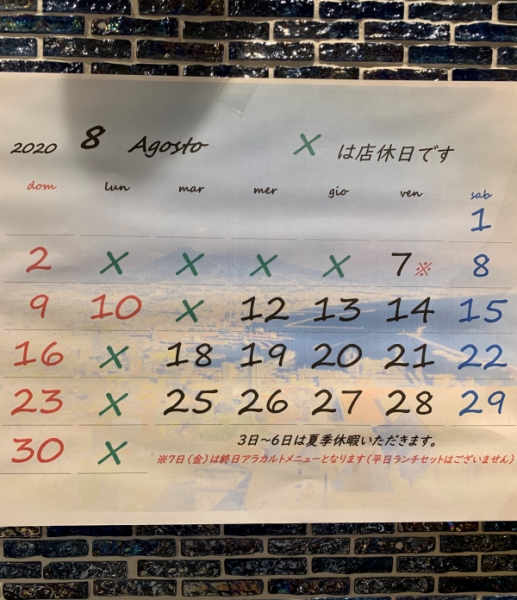 2020 8 Agosto X は店休日です
dom lun mar mer gio ven sab
1
2 X X X X 7※ 8
9 10 X 12 13 14 15
16 X 18 19 20 21 22
23 X 25 26 27 28 29
30 X
3日～6日は夏季休暇いただきます。
※7日（金）は終日アラカルトメニューとなります（平日ランチセットはございません）